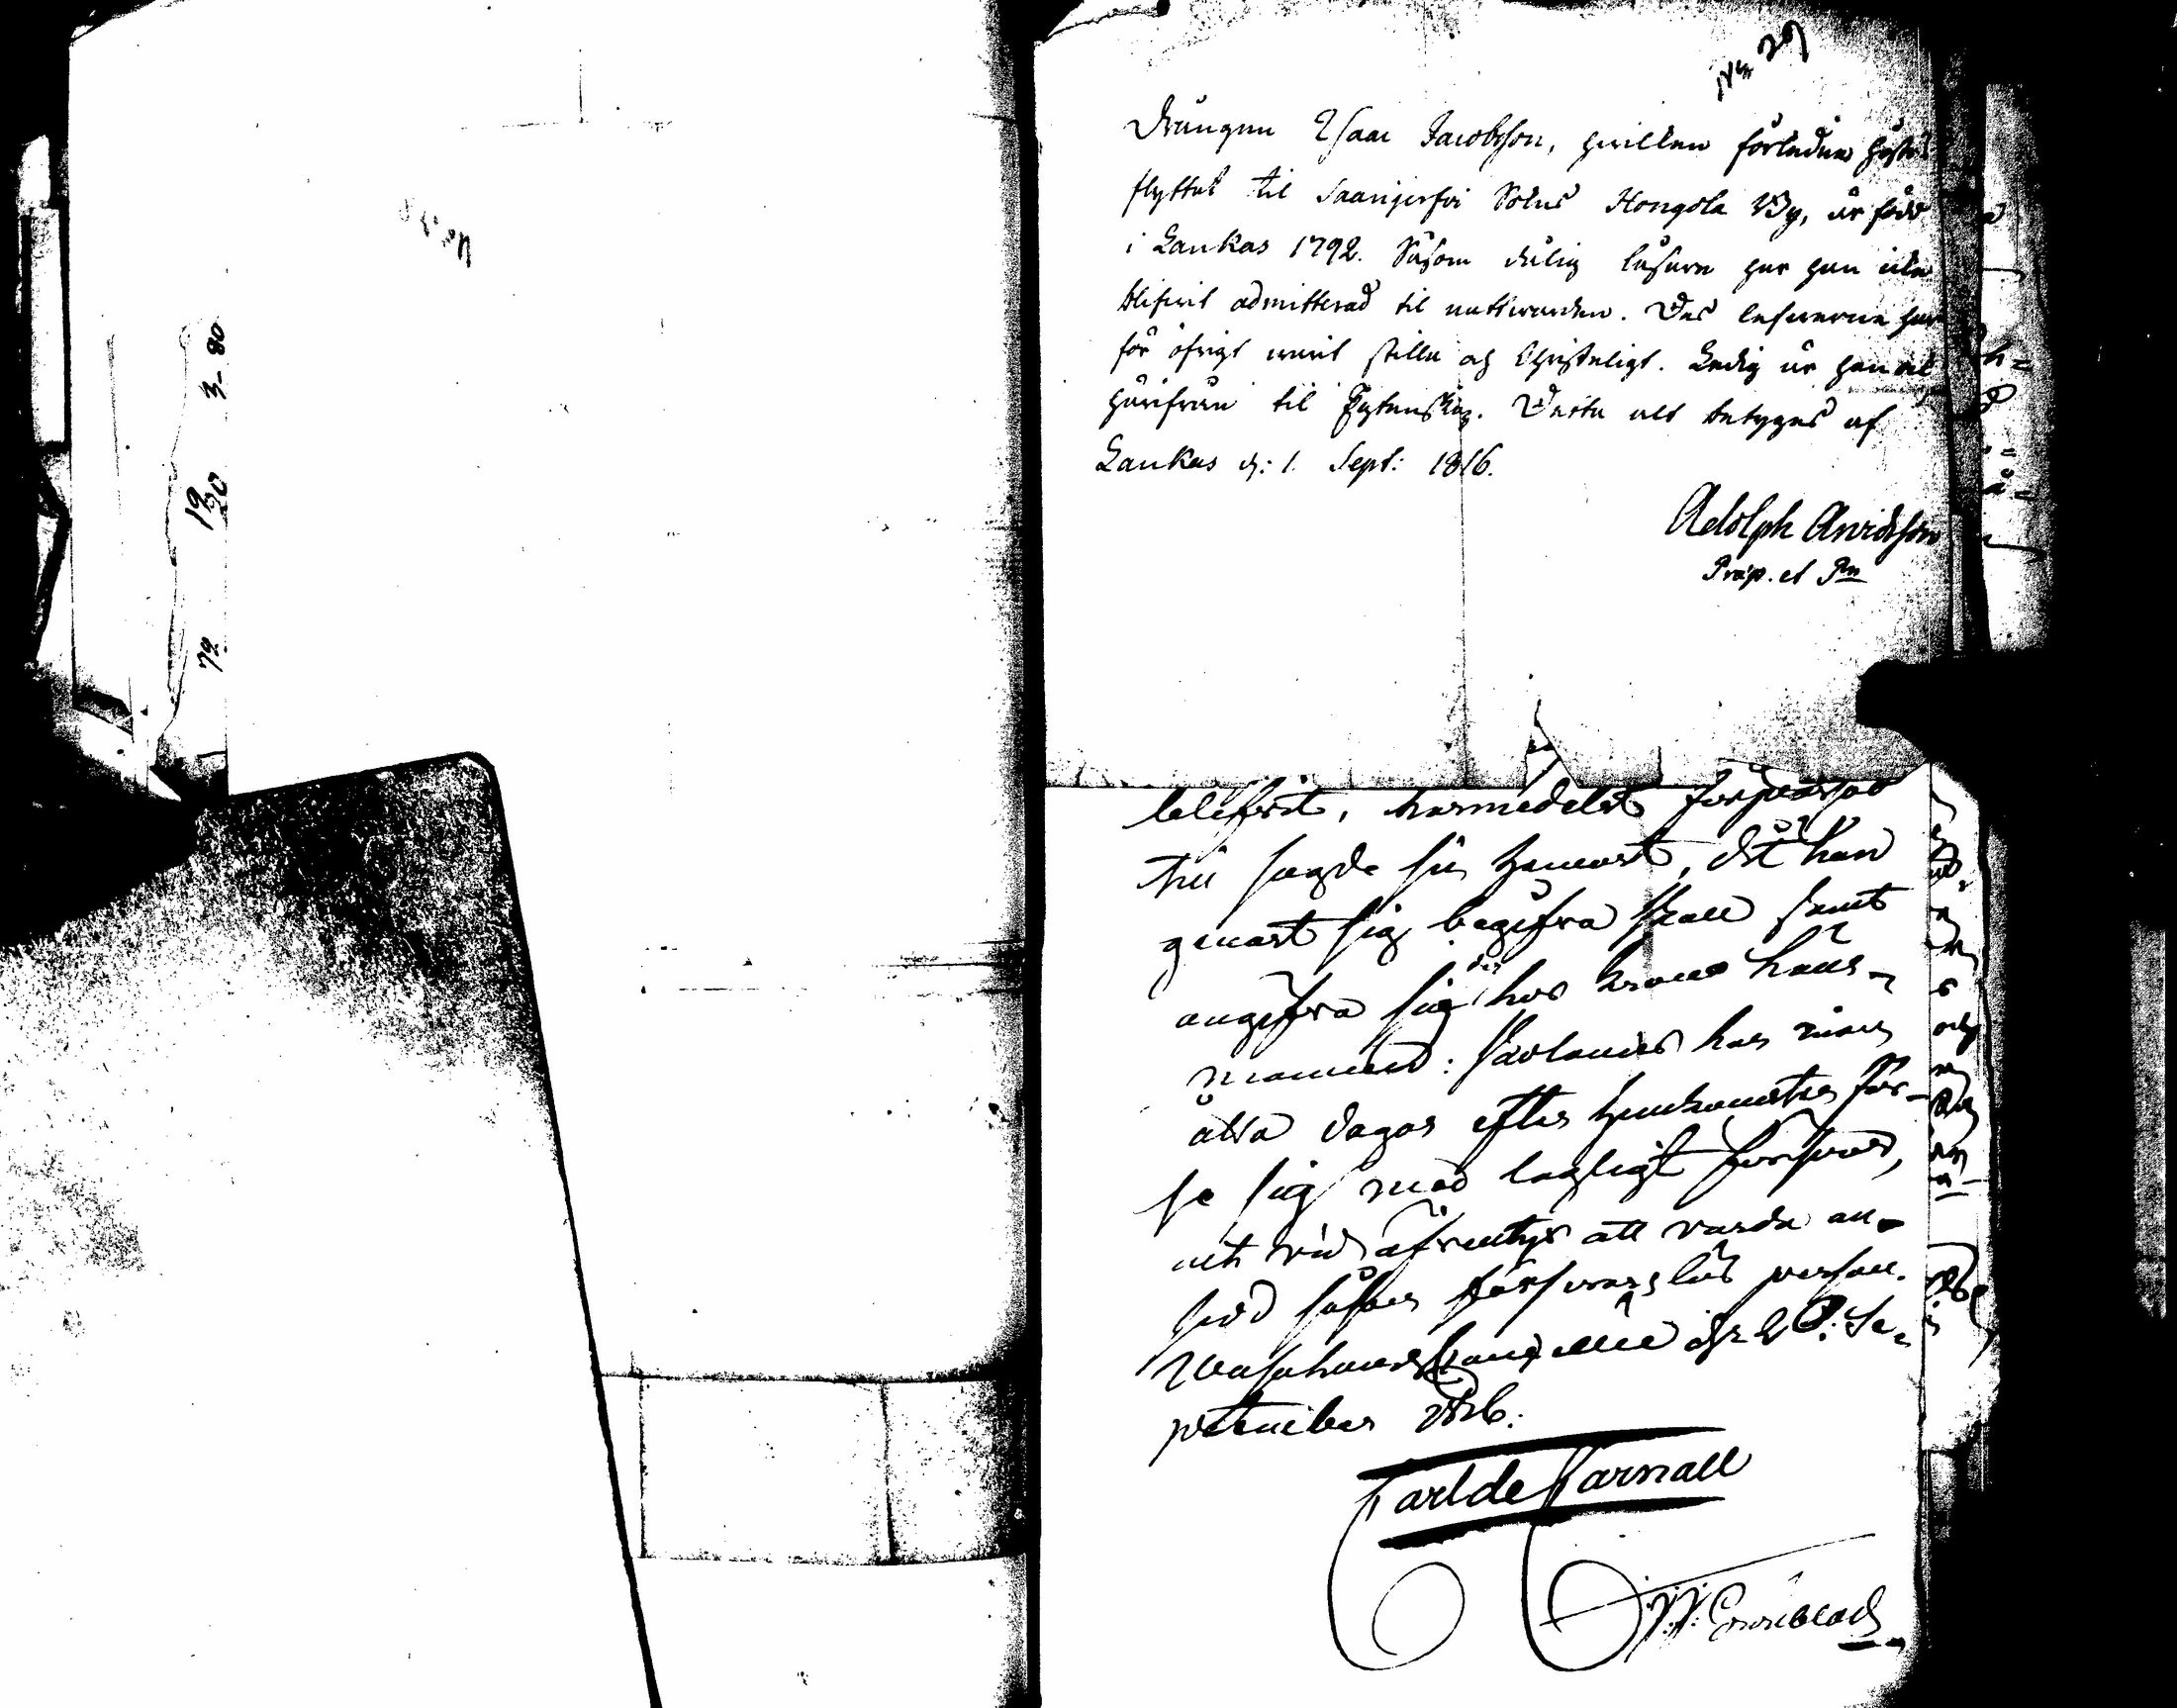 No 29
Drängen Isaac Jacobsson, hvilken förleden höst
flyttat til Saarijerfvi Sokns Hongola By, är född
i Laukas 1792. Såsom dålig läsare har han icke
blifvit admitterad til nattvarden. Des lefverne har
för öfrigt varit stilla och Christeligt. Ledig är han
härifrån til Ägtenskap. Detta alt betygas af
Laukas d: 1. Sept: 1816.
Adolph Arvidsson
Præp. et P
blifvit, härmedelst förpassad
till sagde sin hemort, dit han
genast sig begifva skall samt
angifva sig der hos Krono läns-
mannen: Skolandes han innan
åtta dagar efter hemkomsten för-
se sig med lagligt försvar,
vid äfventyr att varda an-
sedd såsom försvarslös person.
Wasa Landscancellie d. 20 Se-
ptember 1816.
Carl de Carnall
3 - 80
19
20
79